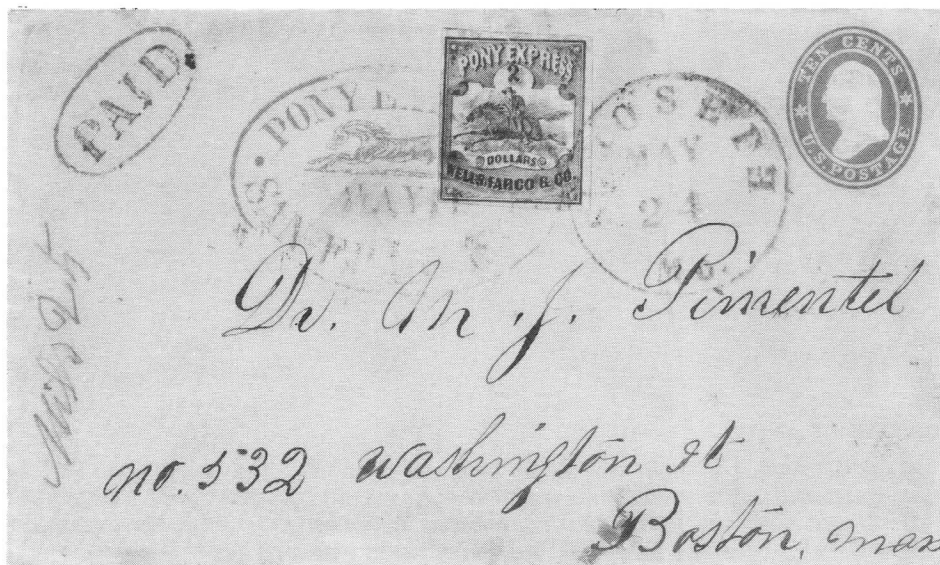 PAID
PONY E
PONY EXPRESS
2
DOLLARS
WELLS, FARGO & CO.
OSEPH
MAY
24
MO.
TEN CENTS
U.S. POSTAGE
Dr. M. J. Pimentel
no. 532 washington st
Boston, mass